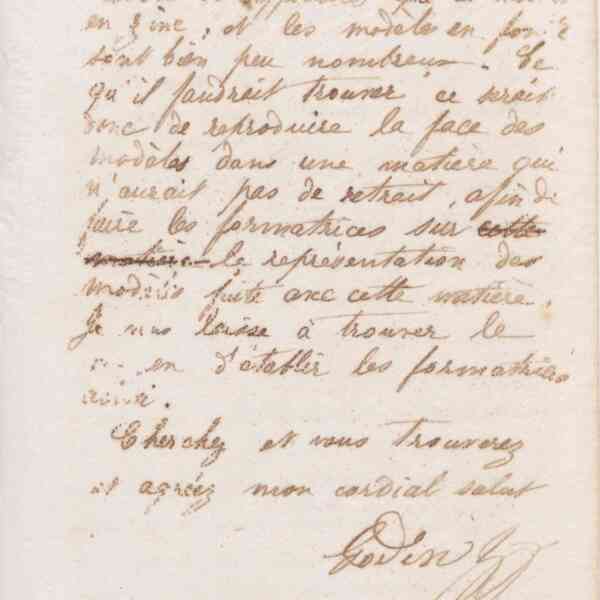 en zinc, et les modèles en fonte
sont bien peu nombreux. Ce
qu'il faudrait trouver ce serait
donc de reproduire la face des
modèles dans une matière qui
n'aurait pas de retrait, afin de
faire les formatrices sur cette
matière la représentation des
modèles faite avec cette matière.
Je vous laisse à trouver le
moyen d'établir les formatrices
ainsi.
Cherchez et vous trouverez
et agréez mon cordial salut
Godin